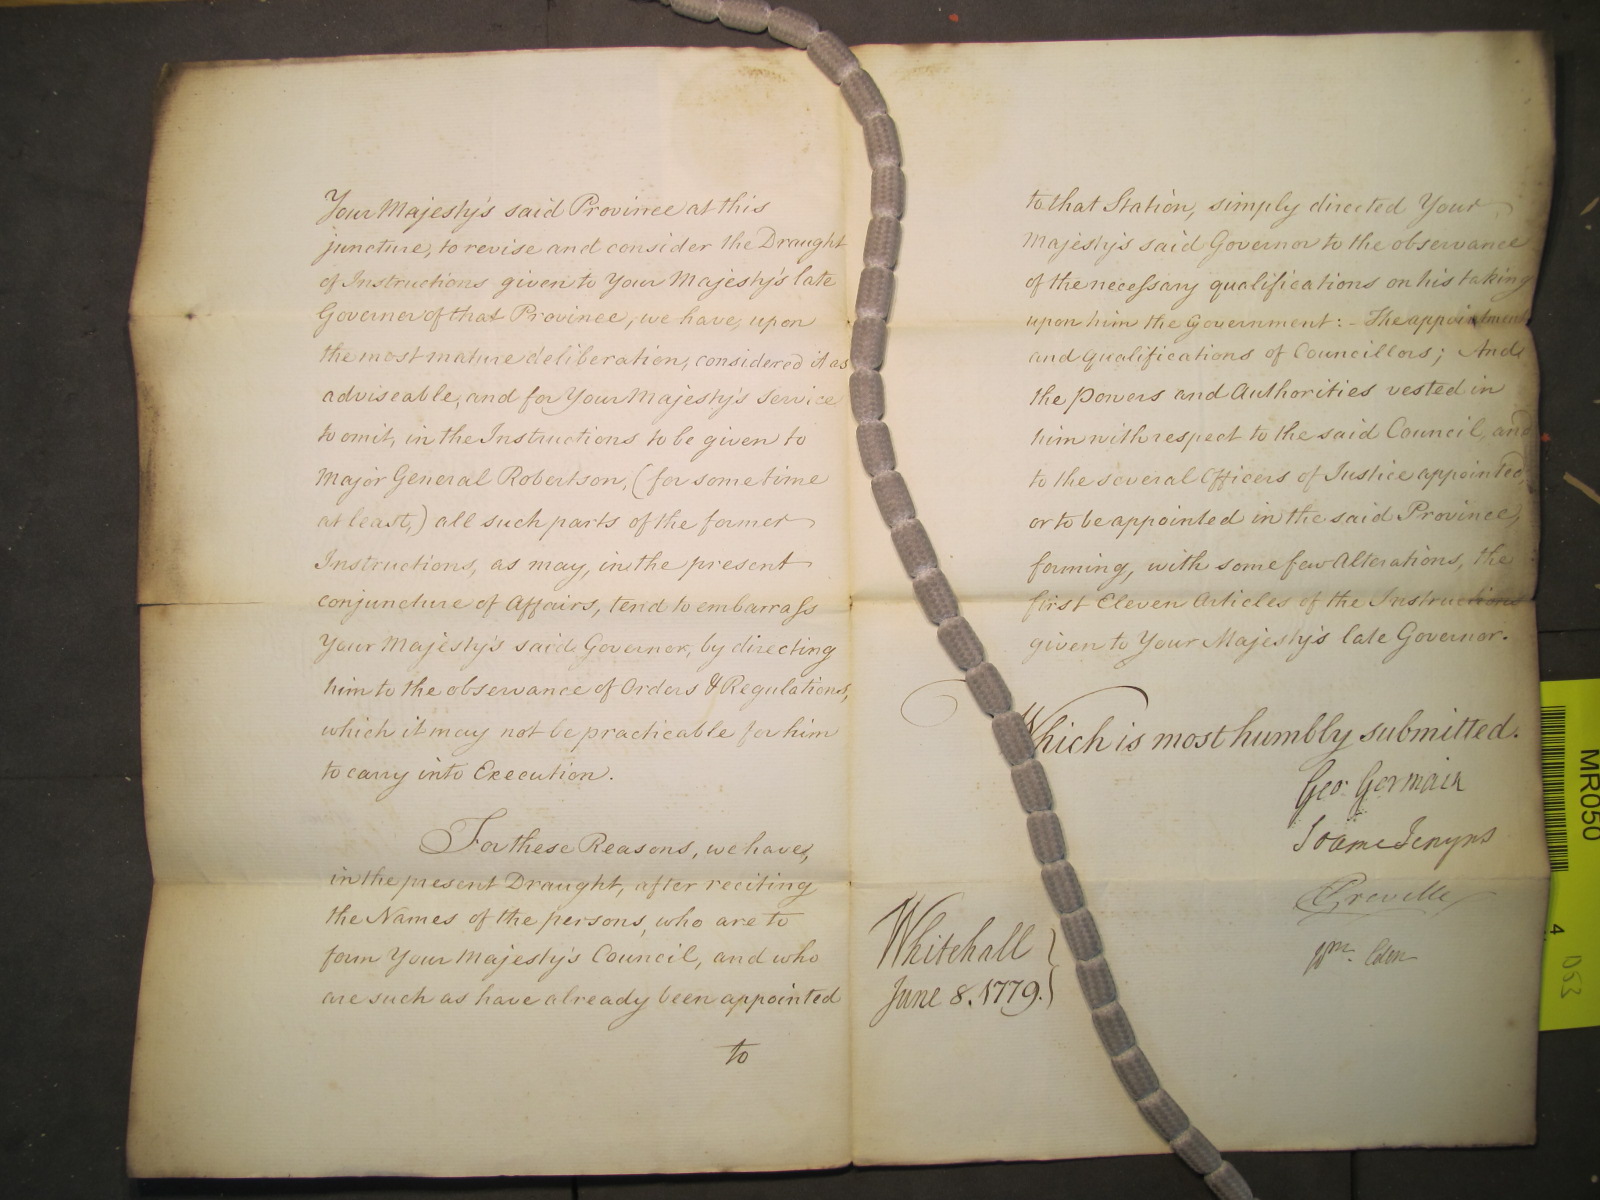 Your Majesty's said Province at this
juncture, to revise and consider the Draught
of Instructions given to Your Majesty's late
Governor of that Province, we have, upon
the most mature deliberation, considered it as
adviseable, and for Your Majesty's Service
to omit, in the Instructions to be given to
Major General Robertson, (for some time
at least,) all such parts of the former
Instructions, as may, in the present
conjuncture of Affairs, tend to embarrass
Your Majesty's said Governor, by directing
him to the observance of Orders & Regulations,
which it may not be practicable for him
to carry into Execution.
For these Reasons, we have,
in the present Draught, after reciting
the Names of the persons, who are to
form Your Majesty's Council, and who
are such as have already been appointed
to
to that Station, simply directed Your
Majesty's said Governor to the observance
of the necessary qualifications on his taking
upon him the Government: - The appointment
and qualifications of Councillors; And
the Powers and Authorities vested in
him with respect to the said Council, and
to the several Officers of Justice appointed,
or to be appointed in the said Province,
forming, with some few Alterations, the
first Eleven Articles of the Instructions
given to Your Majesty's late Governor.
Which is most humbly submitted.
Geo: Germain
Soame Jenyns
Greville
Wm. Eden
Whitehall
June 8. 1779.
MR050
4